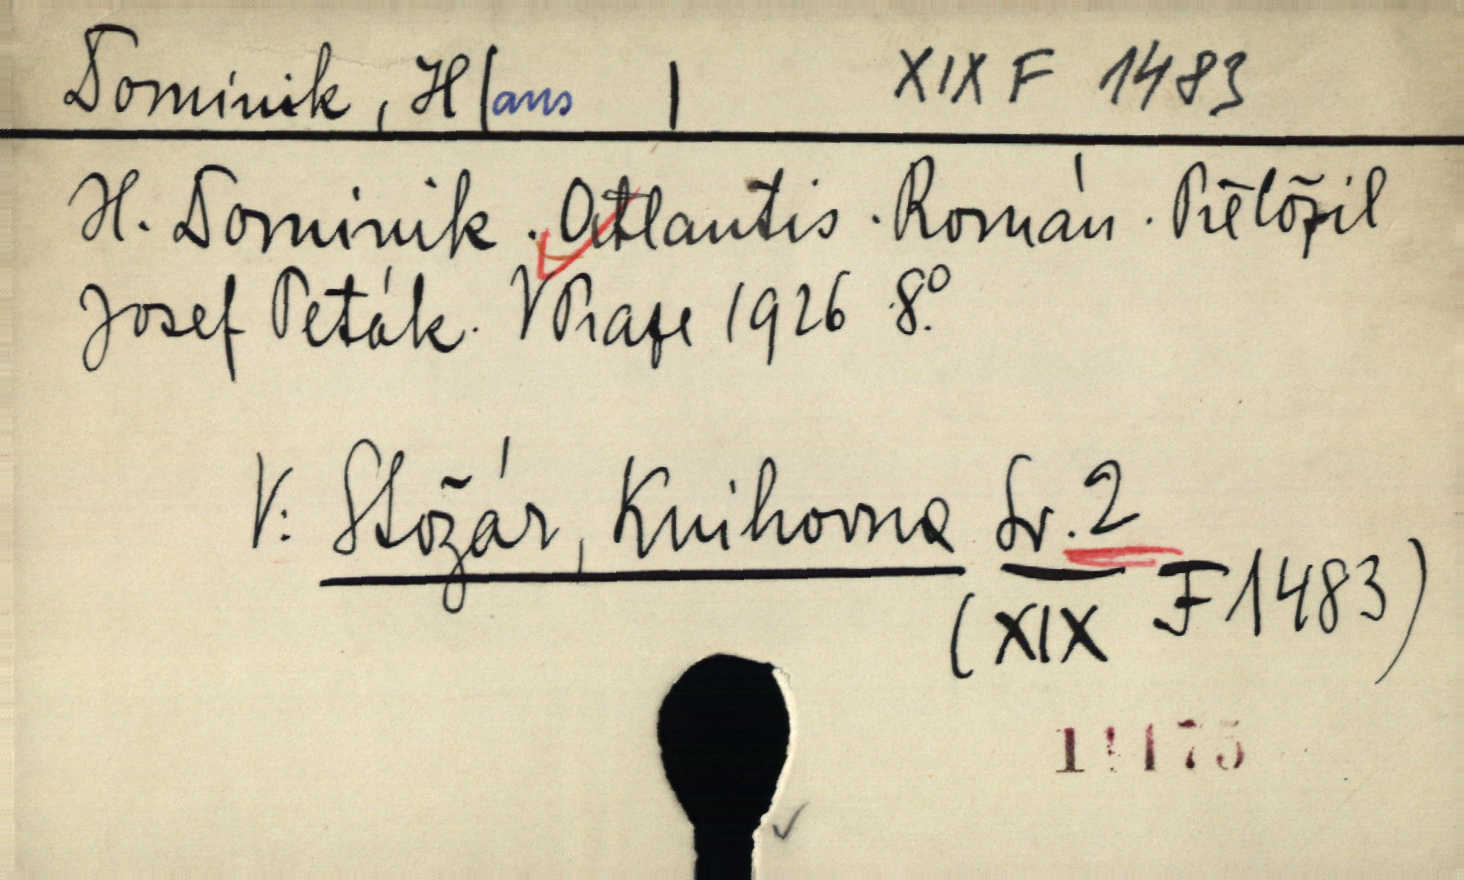 Dominik, H(ans ) XIX F 1483
H. Dominik. Atlantis. Román. Přeložil
Josef Peták. V Praze 1926 8.°
V: Stožár, Knihovna Sv. 2
(XIX F 1483)